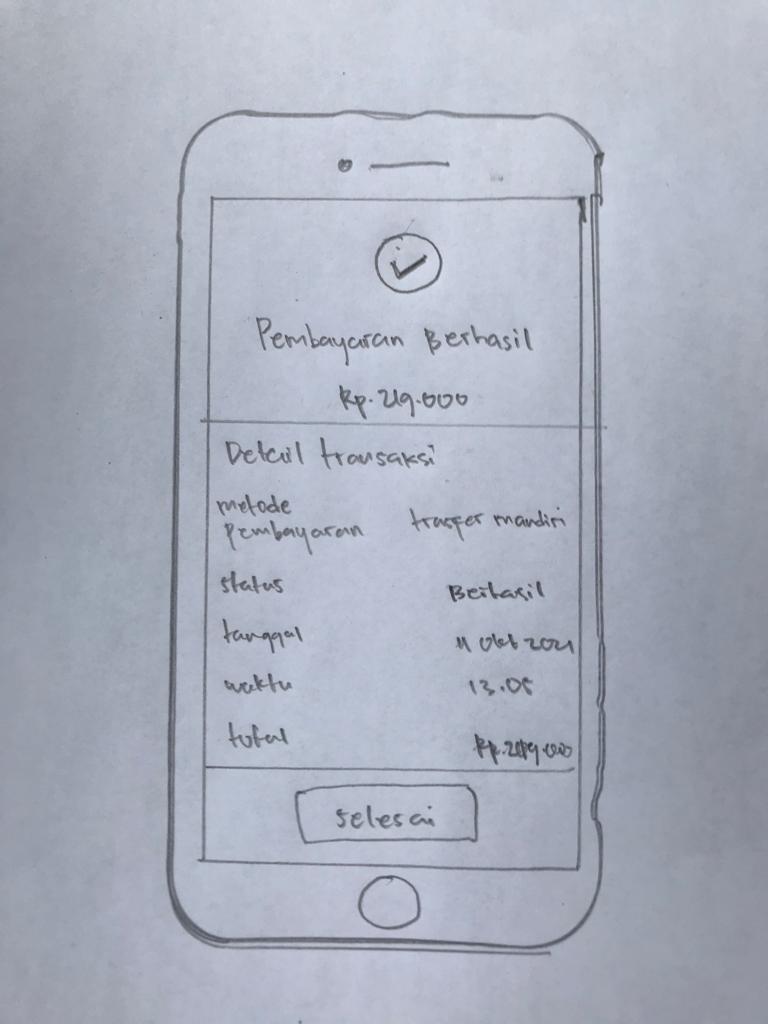 Pembayaran Berhasil
Rp. 219.000
Detail transaksi
metode
pembayaran
trasfer mandiri
status
Berhasil
tanggal
11 Okt 2021
waktu
13.05
total
Rp. 219.000
selesai